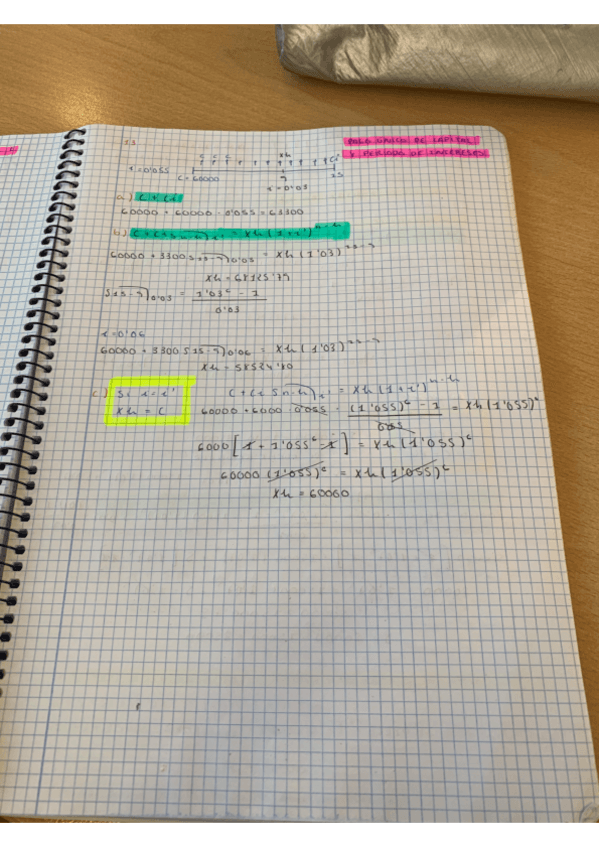 PAGO ÚNICO DE CAPITAL
Y PERIODO DE INTERESES
15
C C C Xh Ci
i=0'055
C=60000 9 15
i=0'03
a) C + Ci
60000 + 60000 · 0'055 = 63300
b) C + Ci Sn-h¬i' = Xh (1+i')^n-h
60000 + 3300 S15-9¬0'03 = Xh (1'03)^15-9
Xh = 68125'79
S15-9¬0'03 = 1'03^6 - 1
0'03
i=0'06
60000 + 3300 S15-9¬0'06 = Xh (1'03)^15-9
Xh = 58524'10
c) Si i=i' C + Ci Sn-h¬i' = Xh (1+i')^n-h
Xh = C 60000 + 6000 · 0'055 · (1'055)^6 - 1 = Xh (1'055)^6
0'055
6000 [1 + 1'055^6 - 1] = Xh (1'055)^6
60000 (1'055)^6 = Xh (1'055)^6
Xh = 60000